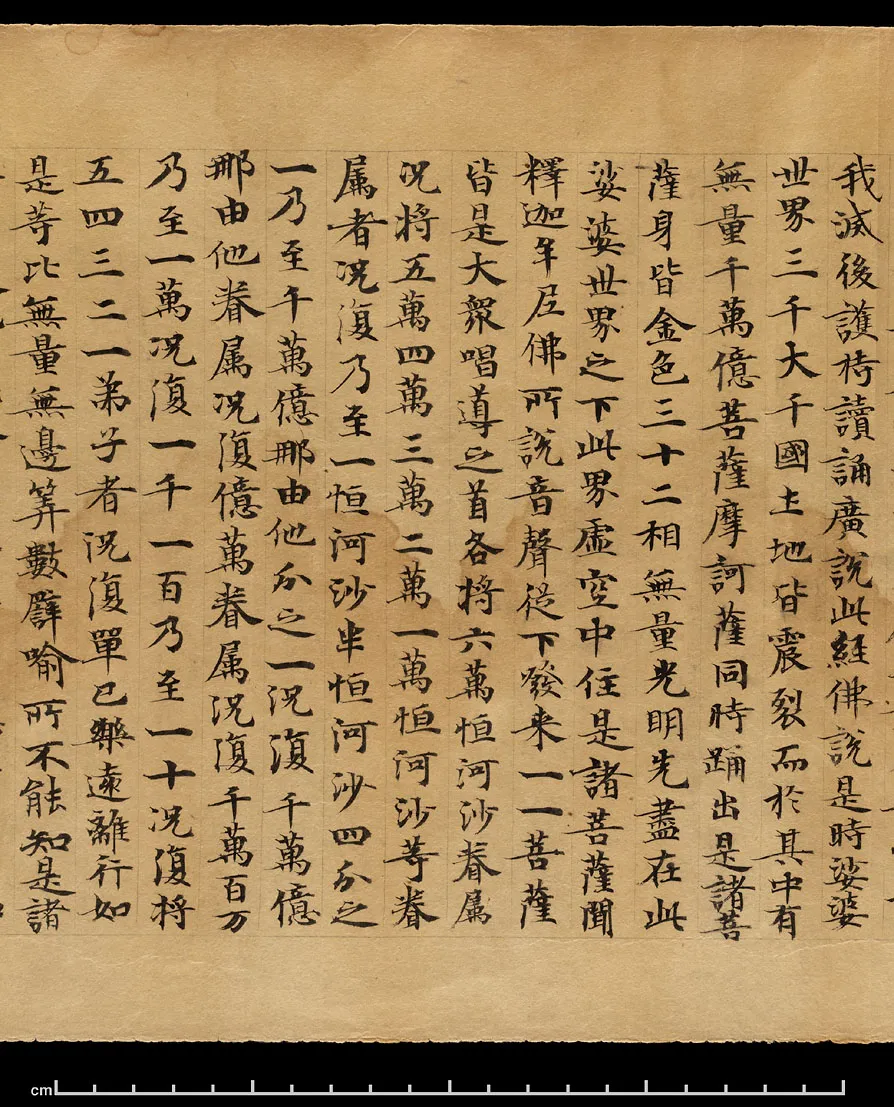 我滅後護持讀誦廣說此經佛說是時娑婆
世界三千大千國土地皆震裂而於其中有
無量千萬億菩薩摩訶薩同時踊出是諸菩
薩身皆金色三十二相無量光明先盡在此
娑婆世界之下此界虛空中住是諸菩薩聞
釋迦牟尼佛所說音聲從下發来一一菩薩
皆是大衆唱導之首各將六萬恒河沙眷属
况將五萬四萬三萬二萬一萬恒河沙等眷
属者况復乃至一恒河沙半恒河沙四分之
一乃至千萬億那由他分之一况復千萬億
那由他眷属况復億萬眷属况復千萬百万
乃至一萬况復一千一百乃至一十况復將
五四三二一弟子者况復單己樂遠離行如
是等比無量無邊筭數譬喻所不能知是諸